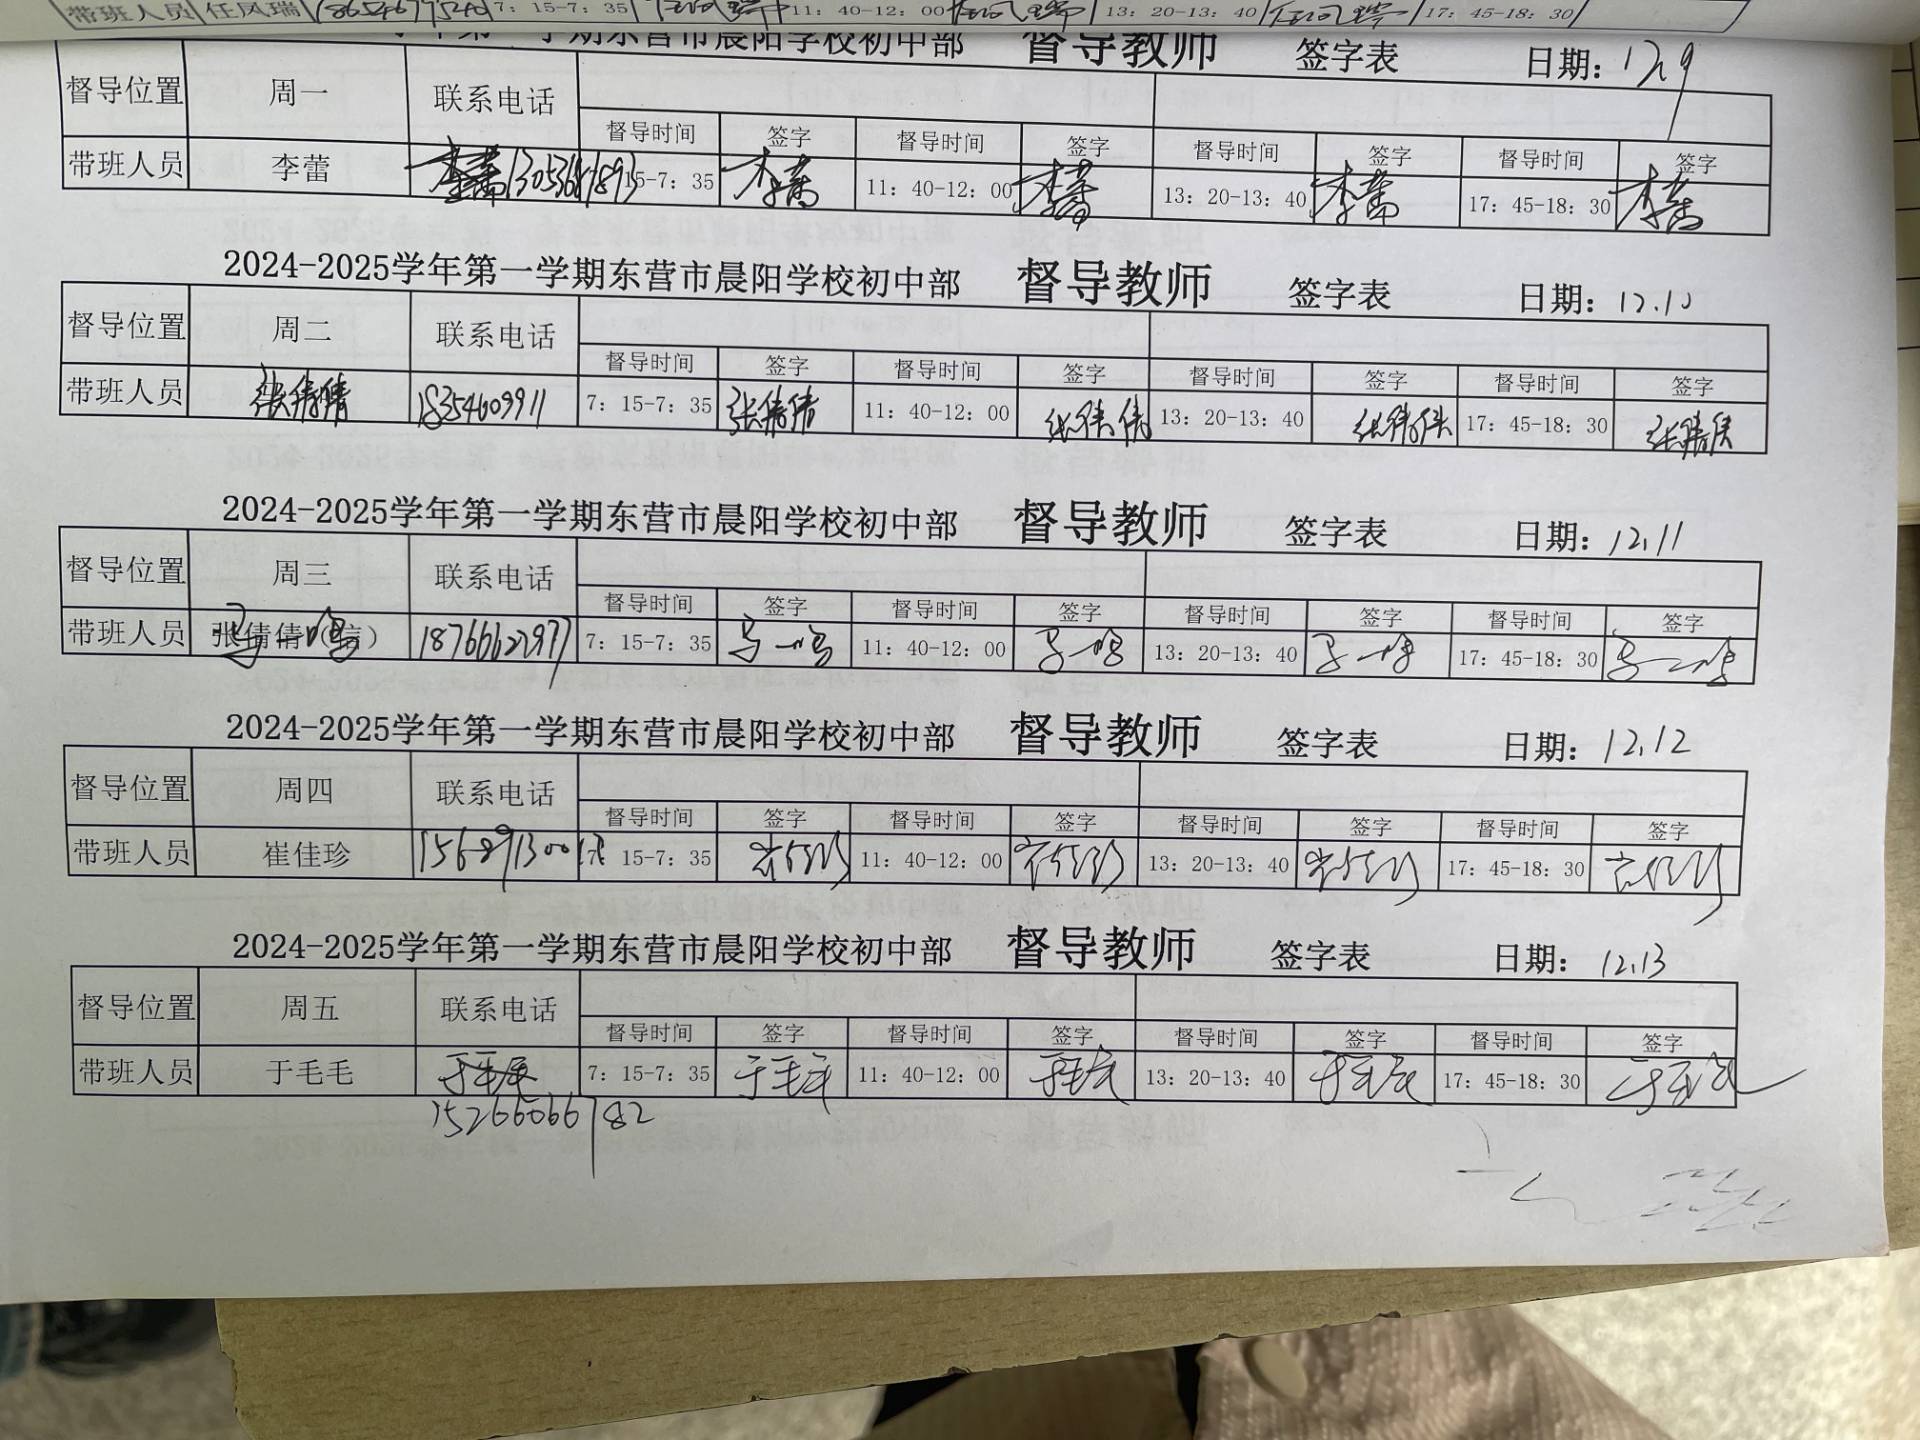 带班人员 任凤瑞 7：15-7：35 11：40-12：00 13：20-13：40 17：45-18：30
学年第一学期东营市晨阳学校初中部 督导教师 签字表 日期：12.9
督导位置 周一 联系电话
督导时间 签字 督导时间 签字 督导时间 签字 督导时间 签字
带班人员 李蕾 李蕾 15-7：35 李蕾 11：40-12：00 李蕾 13：20-13：40 李蕾 17：45-18：30 李蕾
2024-2025学年第一学期东营市晨阳学校初中部 督导教师 签字表 日期：12.10
督导位置 周二 联系电话
督导时间 签字 督导时间 签字 督导时间 签字 督导时间 签字
带班人员 张倩倩 18354609911 7：15-7：35 张倩倩 11：40-12：00 张倩倩 13：20-13：40 张倩倩 17：45-18：30 张倩倩
2024-2025学年第一学期东营市晨阳学校初中部 督导教师 签字表 日期：12.11
督导位置 周三 联系电话
督导时间 签字 督导时间 签字 督导时间 签字 督导时间 签字
带班人员 张倩倩（信） 马一鸣 18766622977 7：15-7：35 马一鸣 11：40-12：00 马一鸣 13：20-13：40 马一鸣 17：45-18：30 马一鸣
2024-2025学年第一学期东营市晨阳学校初中部 督导教师 签字表 日期：12.12
督导位置 周四 联系电话
督导时间 签字 督导时间 签字 督导时间 签字 督导时间 签字
带班人员 崔佳珍 15-7：35 崔佳珍 11：40-12：00 崔佳珍 13：20-13：40 崔佳珍 17：45-18：30 崔佳珍
2024-2025学年第一学期东营市晨阳学校初中部 督导教师 签字表 日期：12.13
督导位置 周五 联系电话
督导时间 签字 督导时间 签字 督导时间 签字 督导时间 签字
带班人员 于毛毛 于毛毛 7：15-7：35 于毛毛 11：40-12：00 于毛毛 13：20-13：40 于毛毛 17：45-18：30 于毛毛
15266066782